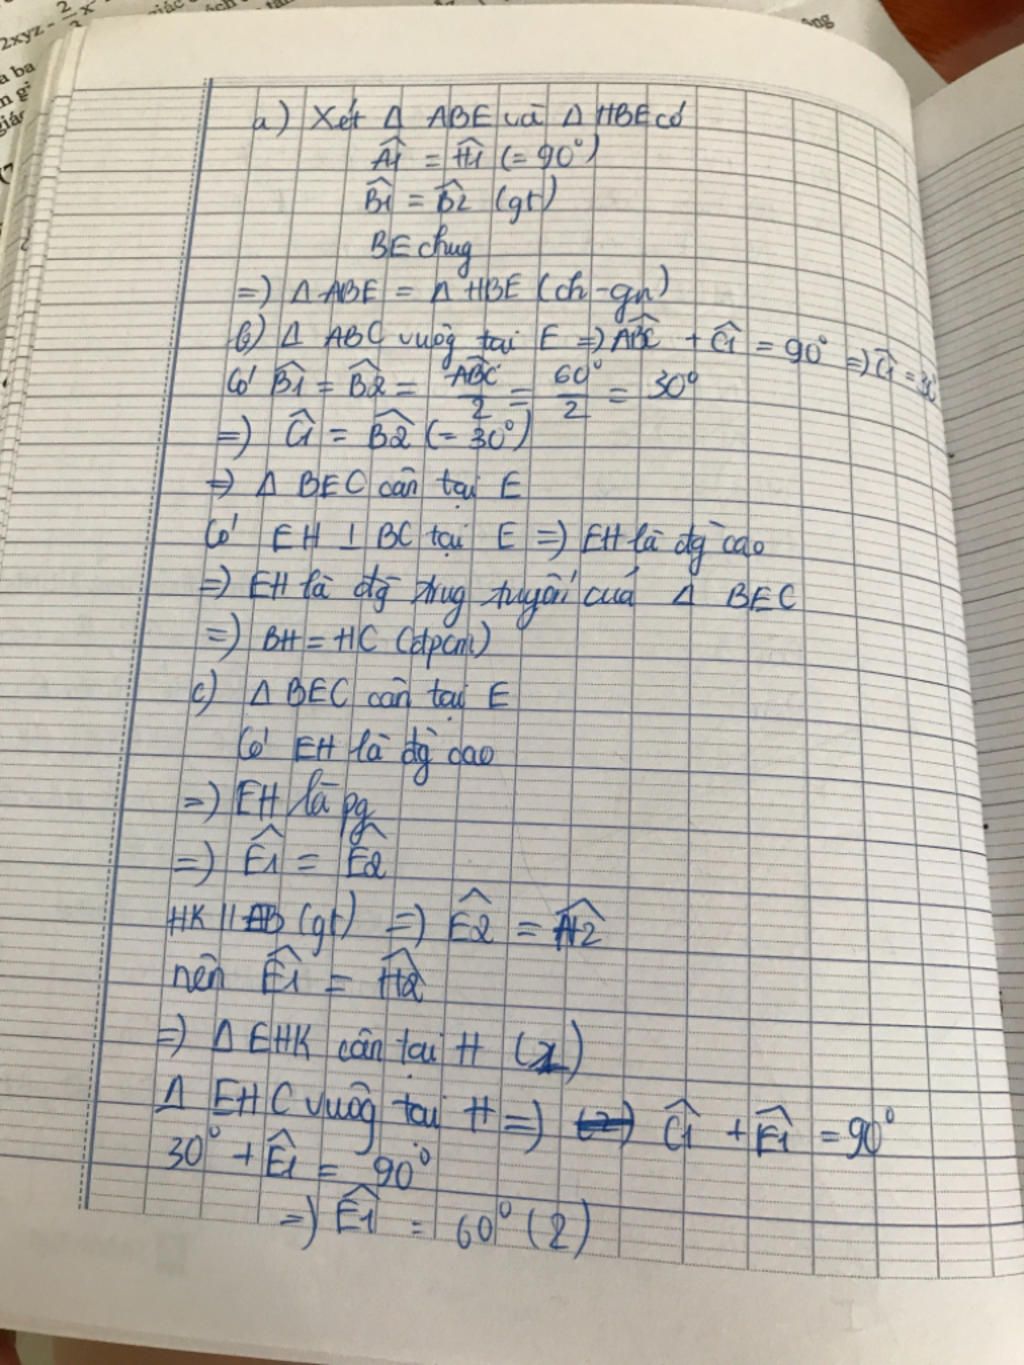 2xyz -
a ba
a) Xét Δ ABE và Δ HBE có
Â1 = Ĥ1 (= 90°)
B̂1 = B̂2 (gt)
BE chug
=) Δ ABE = Δ HBE (ch - gn)
b) Δ ABC vuôg tại E =) ABĈ + Ĉ1 = 90° =) Ĉ1 = 30°
Có B̂1 = B̂2 = ABĈ/2 = 60°/2 = 30°
=) Ĉ1 = B̂2 (= 30°)
=) Δ BEC cân tại E
Có EH ⊥ BC tại E =) EH là đg cao
=) EH là đg trug tuyến của Δ BEC
=) BH = HC (đpcm)
c) Δ BEC cân tại E
Có EH là đg cao
=) EH là pg
=) Ê1 = Ê2
HK // EB (gt) =) Ê2 = Ĥ2
nên Ê1 = Ĥ2
=) Δ EHK cân tại H (1)
Δ EHC vuôg tại H =) Ĉ1 + Ê1 = 90°
30° + Ê1 = 90°
=) Ê1 = 60° (2)